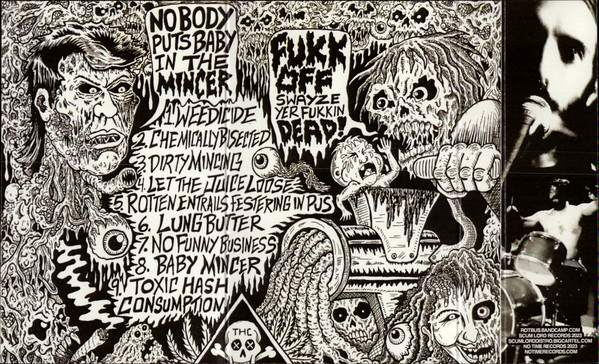 NOBODY
PUTS BABY
IN THE
MINCER
FUKK
OFF
SWAYZE
YER FUKKIN
DEAD!
1. WEEDICIDE
2. CHEMICALLY BISECTED
3. DIRTY MINCING
4. LET THE JUICE LOOSE
5. ROTTEN ENTRAILS FESTERING IN PJS
6. LUNG BUTTER
7. NO FUNNY BUSINESS
8. BABY MINCER
9. TOXIC HASH
CONSUMPTION
THC
ROTBUS.BANDCAMP.COM
SCUM LORD RECORDS 2023
SCUMLORDDISTRO.BIGCARTEL.COM
NO TIME RECORDS 2023
NOTIMERECORDS.COM